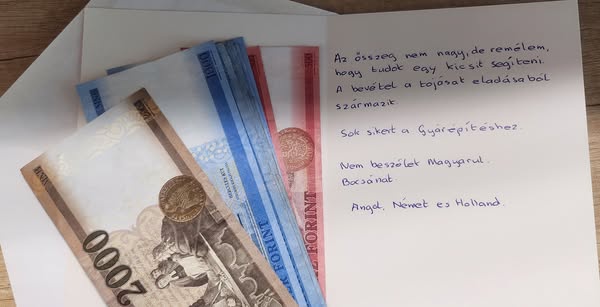 Az összeg nem nagy, de remélem,
hogy tudok egy kicsit segíteni.
A bevétel a tojásat eladásából
származik
Sok sikert a Gyárépítéshez.
Nem beszélet Magyarul.
Bocsánat.
Angol, Német es Holland.
2000
FORINT
FORINT